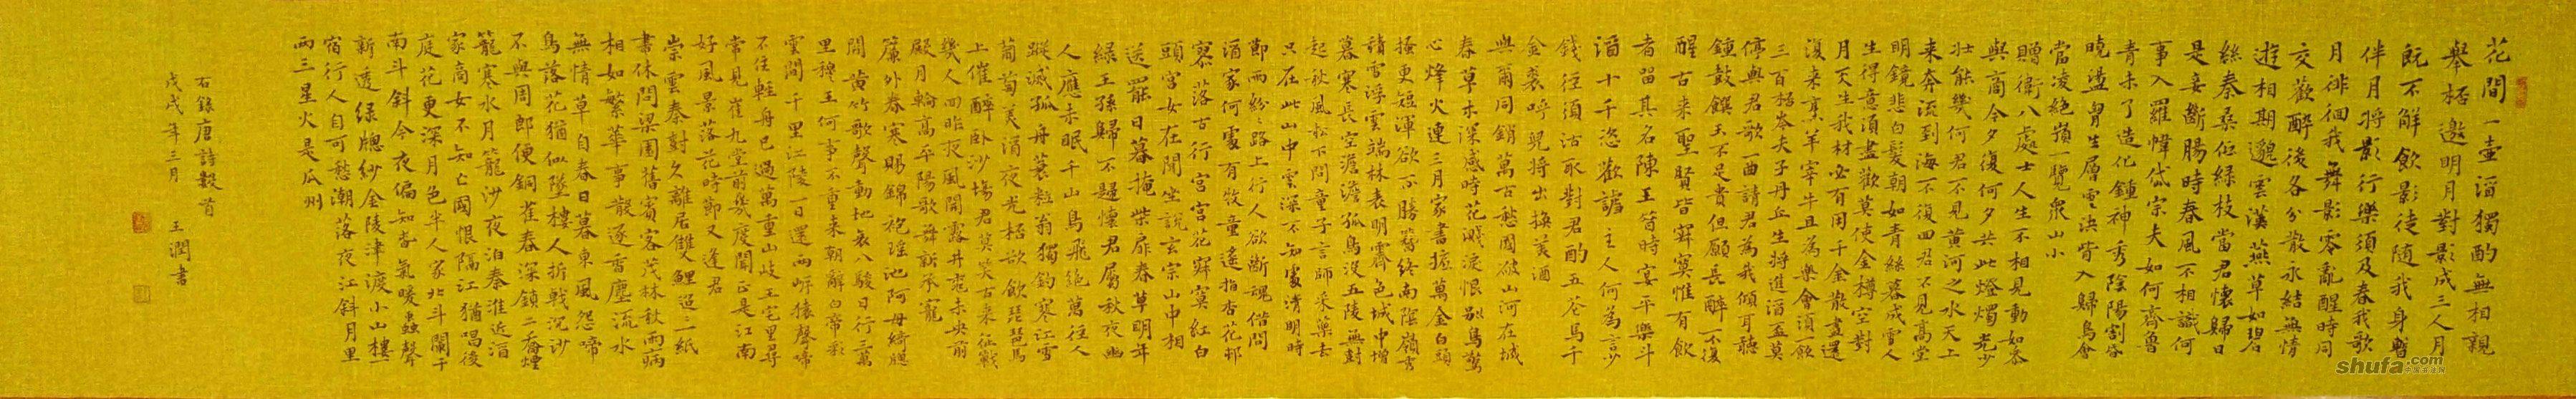 花間一壺酒獨酌無相親
舉杯邀明月對影成三人月
既不解飲影徒隨我身暫
伴月將影行樂須及春我歌
月徘徊我舞影零亂醒時同
交歡醉後各分散永結無情
遊相期邈雲漢燕草如碧
絲秦桑低綠枝當君懷歸日
是妾斷腸時春風不相識何
事入羅幃岱宗夫如何齊魯
青未了造化鍾神秀陰陽割昏
曉盪胸生層雲決眥入歸鳥會
當凌絕頂一覽眾山小
贈衛八處士人生不相見動如參
與商今夕復何夕共此燈燭光少
壯能幾何君不見黃河之水天上
來奔流到海不復回君不見高堂
明鏡悲白髮朝如青絲暮成雪人
生得意須盡歡莫使金樽空對
月天生我材必有用千金散盡還
復來烹羊宰牛且為樂會須一飲
三百杯岑夫子丹丘生將進酒杯莫
停與君歌一曲請君為我傾耳聽
鐘鼓饌玉不足貴但願長醉不復
醒古來聖賢皆寂寞惟有飲
者留其名陳王昔時宴平樂斗
酒十千恣歡謔主人何為言少
錢徑須沽取對君酌五花馬千
金裘呼兒將出換美酒
與爾同銷萬古愁國破山河在城
春草木深感時花濺淚恨別鳥驚
心烽火連三月家書抵萬金白頭
搔更短渾欲不勝簪終南陰嶺秀
積雪浮雲端林表明霽色城中增
暮寒長空澹澹孤鳥沒五陵無樹
起秋風松下問童子言師采藥去
只在此山中雲深不知處清明時
節雨紛紛路上行人欲斷魂借問
酒家何處有牧童遙指杏花村
寥落古行宮宮花寂寞紅白
頭宮女在閒坐說玄宗山中相
送罷日暮掩柴扉春草明年
綠王孫歸不歸懷君屬秋夜幽
人應未眠千山鳥飛絕萬徑人
蹤滅孤舟蓑笠翁獨釣寒江雪
葡萄美酒夜光杯欲飲琵琶馬
上催醉臥沙場君莫笑古來征戰
幾人回昨夜風開露井桃未央前
殿月輪高平陽歌舞新承寵
簾外春寒賜錦袍瑤池阿母綺窗
開黃竹歌聲動地哀八駿日行三萬
里穆王何事不重來朝辭白帝彩
雲間千里江陵一日還兩岸猿聲啼
不住輕舟已過萬重山岐王宅里尋
常見崔九堂前幾度聞正是江南
好風景落花時節又逢君
嵩雲秦樹久離居雙鯉迢迢一紙
書休問梁園舊賓客茂林秋雨病
相如繁華事散逐香塵流水
無情草自春日暮東風怨啼
鳥落花猶似墜樓人折戟沉沙
不與周郎便銅雀春深鎖二喬煙
籠寒水月籠沙夜泊秦淮近酒
家商女不知亡國恨隔江猶唱後
庭花更深月色半人家北斗闌干
南斗斜今夜偏知春氣暖蟲聲
新透綠窗紗金陵津渡小山樓一
宿行人自可愁潮落夜江斜月里
兩三星火是瓜州
石錄唐詩數首
戊戌年三月 王潤書
shufa.com